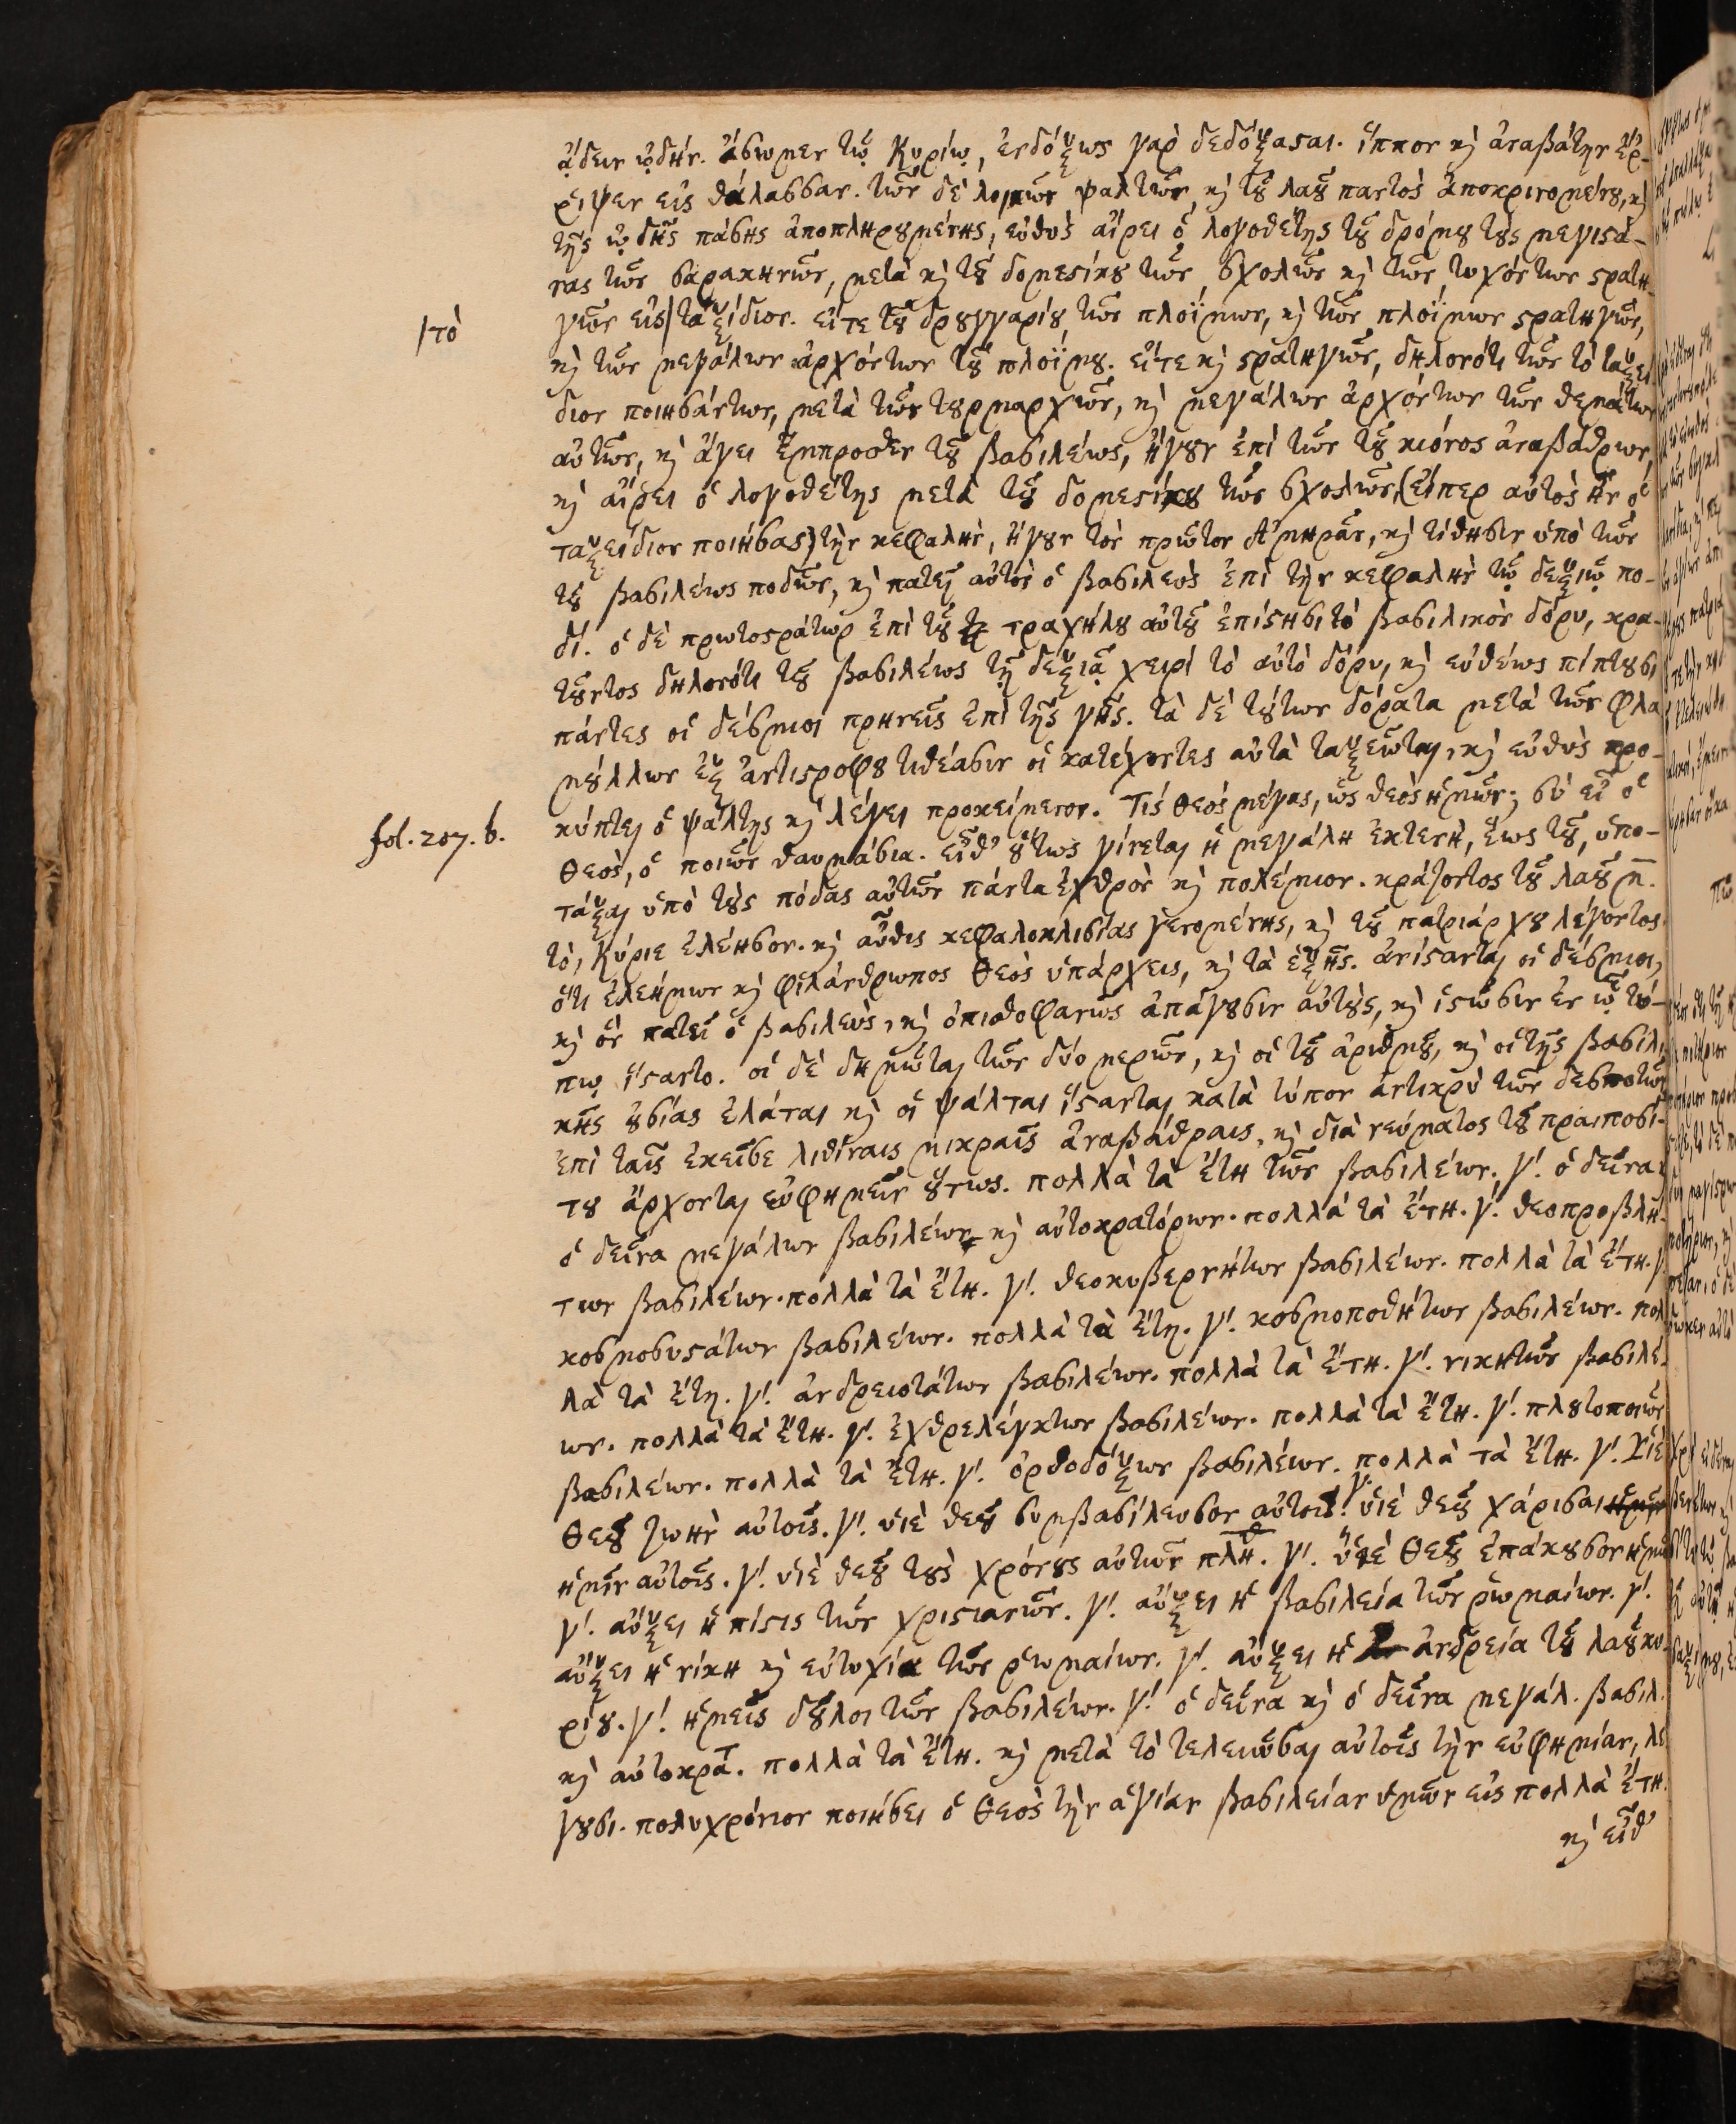 ᾄδειν ᾠδὴν. ἄσωμεν τῷ Κυρίῳ, ἐνδόξως γὰρ δεδόξασαι. ἵππον καὶ ἀναβάτην ἔρ-
ριψεν εἰς θάλασσαν. τῶν δὲ λοιπῶν ψαλτῶν, καὶ τοῦ λαοῦ παντὸς ἀποκρινομένου, καὶ
τῆς ᾠδῆς πάσης ἀποπληρουμένης, εὐθὺς αἴρει ὁ λογοθέτης τοῦ δρόμου τοὺς μεγιστά-
νας τῶν σαρακηνῶν, μετὰ καὶ τοῦ δομεστίκου τῶν σχολῶν καὶ τῶν τυχόντων στρατη-
|τὸ
γῶν εἰς| ταξίδιον. εἴτε τοῦ δρουγγαρίου τῶν πλοΐμων, καὶ τῶν πλοΐμων στρατηγῶν,
καὶ τῶν μεγάλων ἀρχόντων τοῦ πλοΐμου. εἴτε καὶ στρατηγῶν, δηλονότι τῶν τὸ ταξεί-
διον ποιησάντων, μετὰ τῶν τουρμαρχῶν, καὶ μεγάλων ἀρχόντων τῶν θεμάτων
αὐτῶν, καὶ ἄγει ἔμπροσθεν τοῦ βασιλέως, ἤγουν ἐπὶ τῶν τοῦ κιόνος ἀναβάθρων,
καὶ αἴρει ὁ λογοθέτης μετὰ τοῦ δομεστίκου τῶν σχολῶν, (εἴπερ αὐτὸς ἦν ὁ
ταξείδιον ποιήσας) τὴν κεφαλὴν, ἤγουν τὸν πρῶτον Ἀμηρᾶν, καὶ τίθησιν ὑπὸ τῶν
τοῦ βασιλέως ποδῶν, καὶ πατεῖ αὐτὸς ὁ βασιλεὺς ἐπὶ τὴν κεφαλὴν τῷ δεξιῷ πο-
δί. ὁ δὲ πρωτοστράτωρ ἐπὶ τοῦ τραχήλου αὐτοῦ ἐπίστησι τὸ βασιλικὸν δόρυ, κρα-
τοῦντος δηλονότι τοῦ βασιλέως τῇ δεξιᾷ χειρί τὸ αὐτὸ δόρυ, καὶ εὐθέως πίπτουσι
πάντες οἱ δέσμιοι πρηνεῖς ἐπὶ τῆς γῆς. τὰ δὲ τούτων δόρατα μετὰ τῶν φλα-
μούλλων ἐξ ἀντιστρόφου τιθέασιν οἱ κατέχοντες αὐτὰ ταξεῶται, καὶ εὐθὺς προ-
fol. 207. b.
κύπτει ὁ ψάλτης καὶ λέγει προκείμενον. Τίς θεός μέγας, ὡς θεὸς ἡμῶν; σὺ εἶ ὁ
θεὸς, ὁ ποιῶν θαυμάσια. εἶθ' οὕτως γίνεται ἡ μεγάλη ἐκτενὴ, ἕως τοῦ, ὑπο-
τάξαι ὑπὸ τοὺς πόδας αὐτῶν πάντα ἐχθρὸν καὶ πολέμιον. κράζοντος τοῦ λαοῦ μ̅.
τὸ, Κύριε ἐλέησον. καὶ αὖθις κεφαλοκλισίας γενομένης, καὶ τοῦ πατριάρχου λέγοντος.
ὅτι ἐλεήμων καὶ φιλάνθρωπος θεὸς ὑπάρχεις, καὶ τὰ ἑξῆς. ἀνίστανται οἱ δέσμιοι,
καὶ ὃν πατεῖ ὁ βασιλεὺς, καὶ ὀπισθοφανῶς ἀπάγουσιν αὐτοὺς, καὶ ἱστῶσιν ἐν ᾧ τό-
πῳ ἵσταντο. οἱ δὲ δημῶται τῶν δύο μερῶν, καὶ οἱ τοῦ ἀριθμοῦ, καὶ οἱ τῆς βασιλι-
κῆς οὐσίας ἐλάται καὶ οἱ ψάλται ἵστανται κατὰ τύπον ἀντικρὺ τῶν δεσποτῶν
ἐπὶ ταῖς ἐκεῖσε λιθίναις μικραῖς ἀναβάθραις, καὶ διὰ νεύματος τοῦ πραιποσί-
του ἄρχονται εὐφημεῖν οὕτως. πολλὰ τὰ ἔτη τῶν βασιλέων. γ΄. ὁ δεῖνα
ὁ δεῖνα μεγάλων βασιλέων καὶ αὐτοκρατόρων. πολλὰ τὰ ἔτη. γ΄. θεοπροβλή-
των βασιλέων. πολλὰ τὰ ἔτη. γ΄. θεοκυβερνήτων βασιλέων. πολλὰ τὰ ἔτη. γ΄
κοσμοσυστάτων βασιλέων. πολλὰ τὰ ἔτη. γ΄. κοσμοποθήτων βασιλέων. πολ-
λὰ τὰ ἔτη. γ΄. ἀνδρειοτάτων βασιλέων. πολλὰ τὰ ἔτη. γ΄. νικητῶν βασιλέ-
ων. πολλὰ τὰ ἔτη. γ΄. ἐχθρελέγκτων βασιλέων. πολλὰ τὰ ἔτη. γ΄. πλουτοποιῶν
βασιλέων. πολλὰ τὰ ἔτη. γ΄. ὀρθοδόξων βασιλέων. πολλὰ τὰ ἔτη. γ΄. Υἱὲ
θεοῦ ζωὴν αὐτοῖς. γ΄. υἱὲ θεοῦ συμβασίλευσον αὐτοῖς. γ΄. υἱὲ θεοῦ χάρισαι
ἡμῖν αὐτοῖς. γ΄. υἱὲ θεοῦ τοὺς χρόνους αὐτῶν πλη. γ΄. υἱὲ θεοῦ ἐπάκουσον ἡμῶν
γ΄. αὔξει ἡ πίστις τῶν χριστιανῶν. γ΄. αὔξει ἡ βασιλεία τῶν ῥωμαίων. γ΄.
αὔξει ἡ νίκη καὶ εὐτυχία τῶν ῥωμαίων. γ΄. αὔξει ἡ ἀνδρεία τοῦ λαοῦ κυ-
ρίου. γ΄. ἡμεῖς δοῦλοι τῶν βασιλέων. γ΄. ὁ δεῖνα καὶ ὁ δεῖνα μεγάλ. βασιλ.
καὶ αὐτοκρατ. πολλὰ τὰ ἔτη. καὶ μετὰ τὸ τελειῶσαι αὐτοῖς τὴν εὐφημίαν, λέ-
γουσι. πολυχρόνιον ποιήσει ὁ θεὸς τὴν ἁγίαν βασιλείαν ὑμῶν εἰς πολλὰ ἔτη.
καὶ εἶθ'